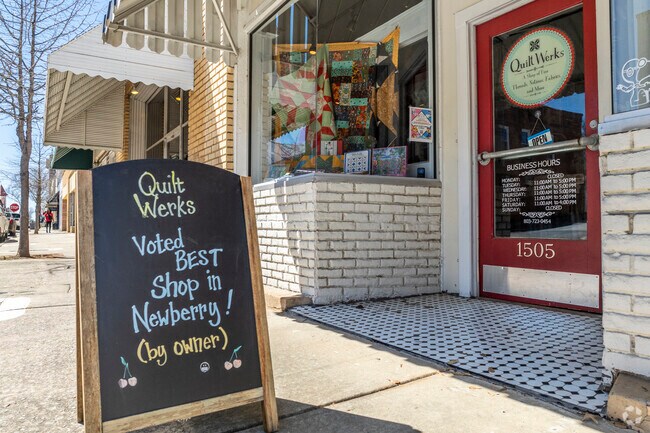 Quilt
Werks
Voted
BEST
Shop in
Newberry!
(by owner)
QuiltWerks
A Shop of Fine
and More
OPEN
BUSINESS HOURS
MONDAY: CLOSED
TUESDAY: 11:00 AM to 5:00 PM
WEDNESDAY: 11:00 AM to 5:00 PM
THURSDAY: 11:00 AM to 5:00 PM
FRIDAY: 11:00 AM to 5:00 PM
SATURDAY: 11:00 AM to 4:00 PM
SUNDAY: CLOSED
803-723-0454
1505